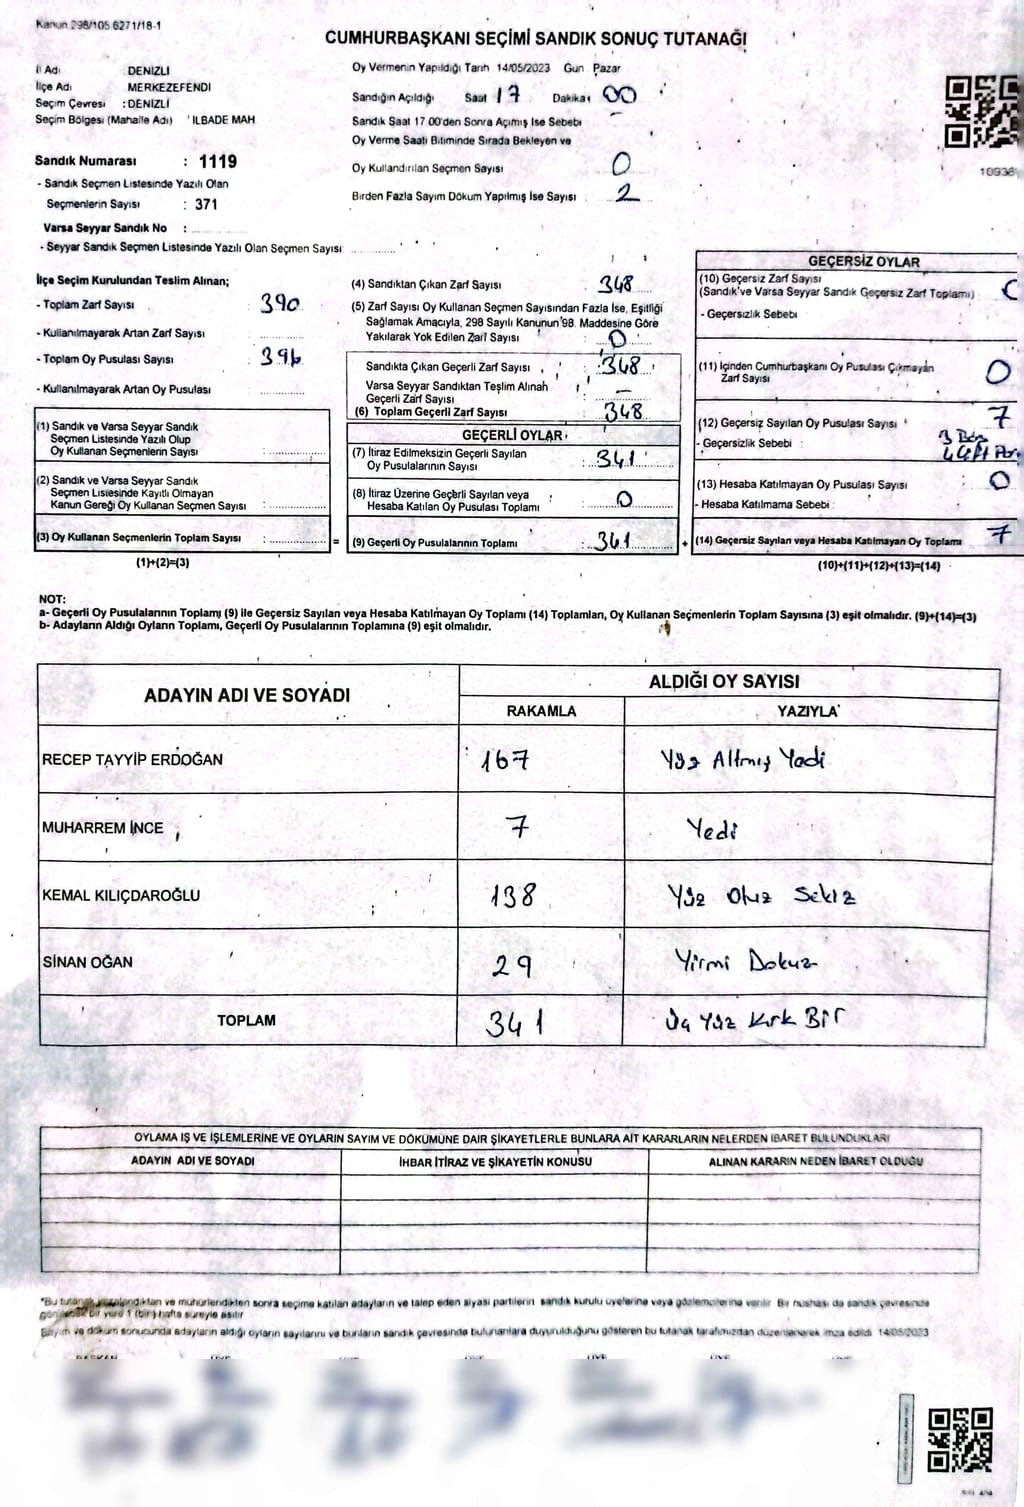 Kanun 298/105 6271/18-1
CUMHURBAŞKANI SEÇİMİ SANDIK SONUÇ TUTANAĞI
İl Adı DENİZLİ
İlçe Adı MERKEZEFENDİ
Seçim Çevresi : DENİZLİ
Seçim Bölgesi (Mahalle Adı) İLBADE MAH
Sandık Numarası : 1119
- Sandık Seçmen Listesinde Yazılı Olan
Seçmenlerin Sayısı : 371
Varsa Seyyar Sandık No :
- Seyyar Sandık Seçmen Listesinde Yazılı Olan Seçmen Sayısı
Oy Vermenin Yapıldığı Tarih 14/05/2023 Gün Pazar
Sandığın Açıldığı Saat 17 Dakika 00
Sandık Saat 17 00'den Sonra Açılmış İse Sebebi
Oy Verme Saati Bitiminde Sırada Bekleyen ve
Oy Kullandırılan Seçmen Sayısı 0
Birden Fazla Sayım Döküm Yapılmış İse Sayısı 2
10936
İlçe Seçim Kurulundan Teslim Alınan;
- Toplam Zarf Sayısı 390
- Kullanılmayarak Artan Zarf Sayısı
- Toplam Oy Pusulası Sayısı 396
- Kullanılmayarak Artan Oy Pusulası
(1) Sandık ve Varsa Seyyar Sandık
Seçmen Listesinde Yazılı Olup
Oy Kullanan Seçmenlerin Sayısı :
(2) Sandık ve Varsa Seyyar Sandık
Seçmen Listesinde Kayıtlı Olmayan
Kanun Gereği Oy Kullanan Seçmen Sayısı :
(3) Oy Kullanan Seçmenlerin Toplam Sayısı : =
(1)+(2)=(3)
(4) Sandıktan Çıkan Zarf Sayısı 348
(5) Zarf Sayısı Oy Kullanan Seçmen Sayısından Fazla İse, Eşitliği
Sağlamak Amacıyla, 298 Sayılı Kanunun 98. Maddesine Göre
Yakılarak Yok Edilen Zarf Sayısı 0
Sandıkta Çıkan Geçerli Zarf Sayısı : 348
Varsa Seyyar Sandıktan Teslim Alınan
Geçerli Zarf Sayısı : –
(6) Toplam Geçerli Zarf Sayısı : 348
GEÇERLİ OYLAR
(7) İtiraz Edilmeksizin Geçerli Sayılan
Oy Pusulalarının Sayısı : 341
(8) İtiraz Üzerine Geçerli Sayılan veya
Hesaba Katılan Oy Pusulası Toplamı : 0
(9) Geçerli Oy Pusulalarının Toplamı : 341 +
GEÇERSİZ OYLAR
(10) Geçersiz Zarf Sayısı
(Sandık ve Varsa Seyyar Sandık Geçersiz Zarf Toplamı)
- Geçersizlik Sebebi
(11) İçinden Cumhurbaşkanı Oy Pusulası Çıkmayan
Zarf Sayısı 0
(12) Geçersiz Sayılan Oy Pusulası Sayısı 7
- Geçersizlik Sebebi : 3
(13) Hesaba Katılmayan Oy Pusulası Sayısı : 0
- Hesaba Katılmama Sebebi :
(14) Geçersiz Sayılan veya Hesaba Katılmayan Oy Toplamı 7
(10)+(11)+(12)+(13)=(14)
NOT:
a- Geçerli Oy Pusulalarının Toplamı (9) ile Geçersiz Sayılan veya Hesaba Katılmayan Oy Toplamı (14) Toplamları, Oy Kullanan Seçmenlerin Toplam Sayısına (3) eşit olmalıdır. (9)+(14)=(3)
b- Adayların Aldığı Oyların Toplamı, Geçerli Oy Pusulalarının Toplamına (9) eşit olmalıdır.
ADAYIN ADI VE SOYADI
ALDIĞI OY SAYISI
RAKAMLA YAZIYLA
RECEP TAYYİP ERDOĞAN 167 Yüz Altmış Yedi
MUHARREM İNCE 7 Yedi
KEMAL KILIÇDAROĞLU 138 Yüz Otuz Sekiz
SİNAN OĞAN 29 Yirmi Dokuz
TOPLAM 341 Üç Yüz Kırk Bir
OYLAMA İŞ VE İŞLEMLERİNE VE OYLARIN SAYIM VE DÖKÜMÜNE DAİR ŞİKAYETLERLE BUNLARA AİT KARARLARIN NELERDEN İBARET BULUNDUKLARI
ADAYIN ADI VE SOYADI İHBAR İTİRAZ VE ŞİKAYETİN KONUSU ALINAN KARARIN NEDEN İBARET OLDUĞU
*Bu tutanak imzalandıktan ve mühürlendikten sonra seçime katılan adayların ve talep eden siyasi partilerin sandık kurulu üyelerine veya gözlemcilerine verilir Bir nüshası da sandık çevresinde
görülebilecek bir yere 1 (bir) hafta süreyle asılır
Sayım ve döküm sonucunda adayların aldığı oyların sayılarını ve bunların sandık çevresinde bulunanlara duyurulduğunu gösteren bu tutanak tarafımızdan düzenlenerek imza edildi 14/05/2023
BAŞKAN ÜYE ÜYE ÜYE ÜYE ÜYE